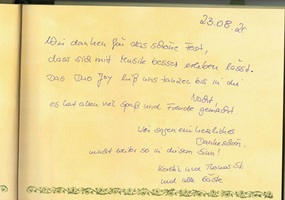 23.08.20
Wir danken für das schöne Fest,
dass sich mit Musik besser erleben lässt.
Das Duo Joy ließ uns tanzen bis in die
Nacht,
es hat allen viel Spaß und Freude gemacht
Wir sagen ein herzliches
Dankeschön,
macht weiter so in diesem Sinn!
und Thomas St.
und alle Gäste